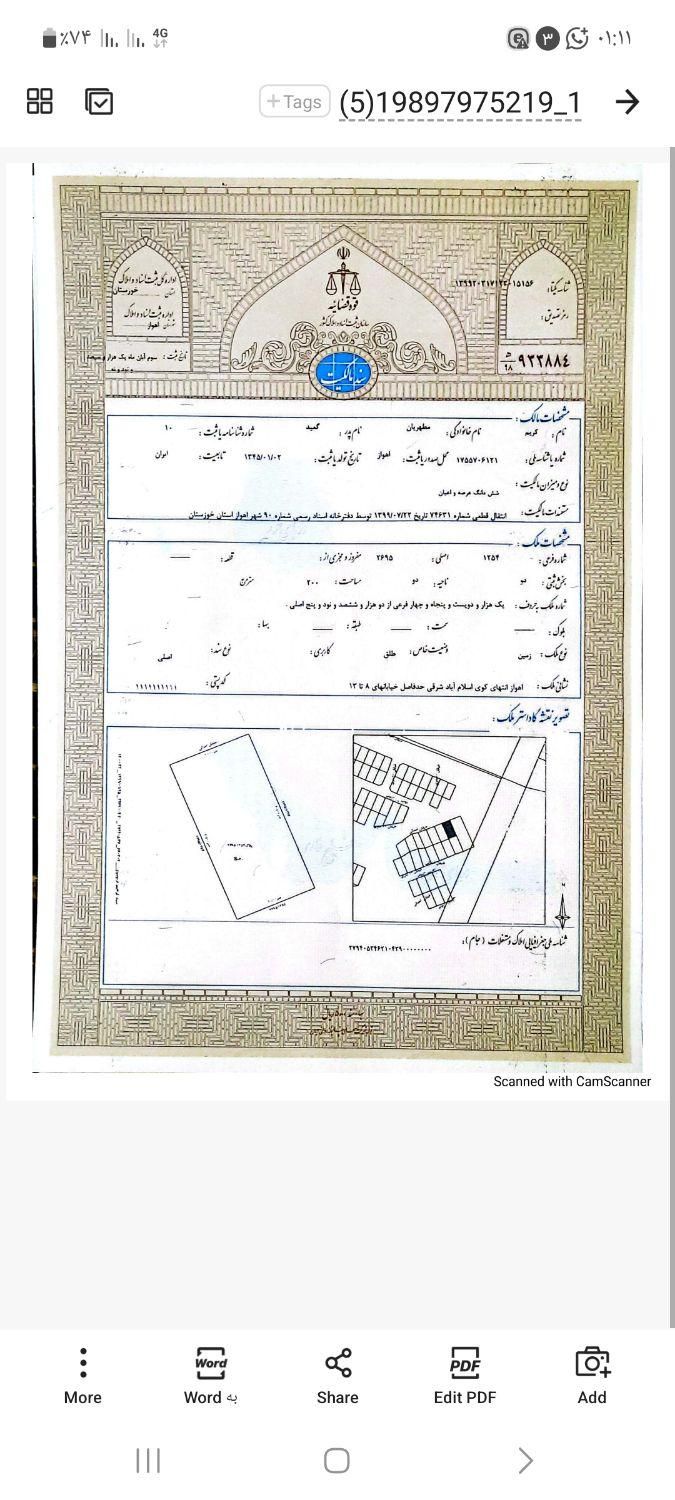 ٪۷۴ 4G ۳ ۰۱:۱۱
+Tags (5)19897975219_1
اداره کل ثبت اسناد و املاک
استان خوزستان
اداره ثبت اسناد و املاک
شهرستان اهواز
تاریخ ثبت: سوم آبان ماه یک هزار و سیصد
و نود و نه
قوه قضائیه
سازمان ثبت اسناد و املاک کشور
سند مالکیت
شناسه یکتا:
رمز تصدیق:
۹۳۳۸۸۴
۹۸
مشخصات مالک:
نام: نام خانوادگی: مطهریان نام پدر: شماره شناسنامه یا ثبت: ۱۰
شماره یا شناسه ملی: ۱۷۵۵۷۰۶۱۲۱ محل صدور یا ثبت: اهواز تاریخ تولد یا ثبت: ۱۳۴۵/۰۱/۰۲ تابعیت: ایران
نوع و میزان مالکیت: شش دانگ عرصه و اعیان
مستندات مالکیت: انتقال قطعی شماره ۷۴۶۳۱ تاریخ ۱۳۹۹/۰۷/۲۲ توسط دفترخانه اسناد رسمی شماره ۹۰ شهر اهواز استان خوزستان
مشخصات ملک:
شماره فرعی: ۱۲۵۴ اصلی: ۲۶۹۵ مفروز و مجزی از: قطعه:
بخش ثبتی: دو ناحیه: دو مساحت: ۲۰۰ مترمربع
شماره ملک بحروف: یک هزار و دویست و پنجاه و چهار فرعی از دو هزار و ششصد و نود و پنج اصلی.
بلوک: سمت: طبقه: بها:
نوع ملک: زمین وضعیت خاص: طلق کاربری: نوع سند: اصلی
نشانی ملک: اهواز انتهای کوی اسلام آباد شرقی حدفاصل خیابانهای ۸ تا ۱۳ کد پستی: ۱۱۱۱۱۱۱۱۱۱
تصویر نقشه کاداستر ملک:
شناسه ملی جغرافیایی املاک و مستغلات (جام):
Scanned with CamScanner
More
Word
Word به
Share
PDF
Edit PDF
Add